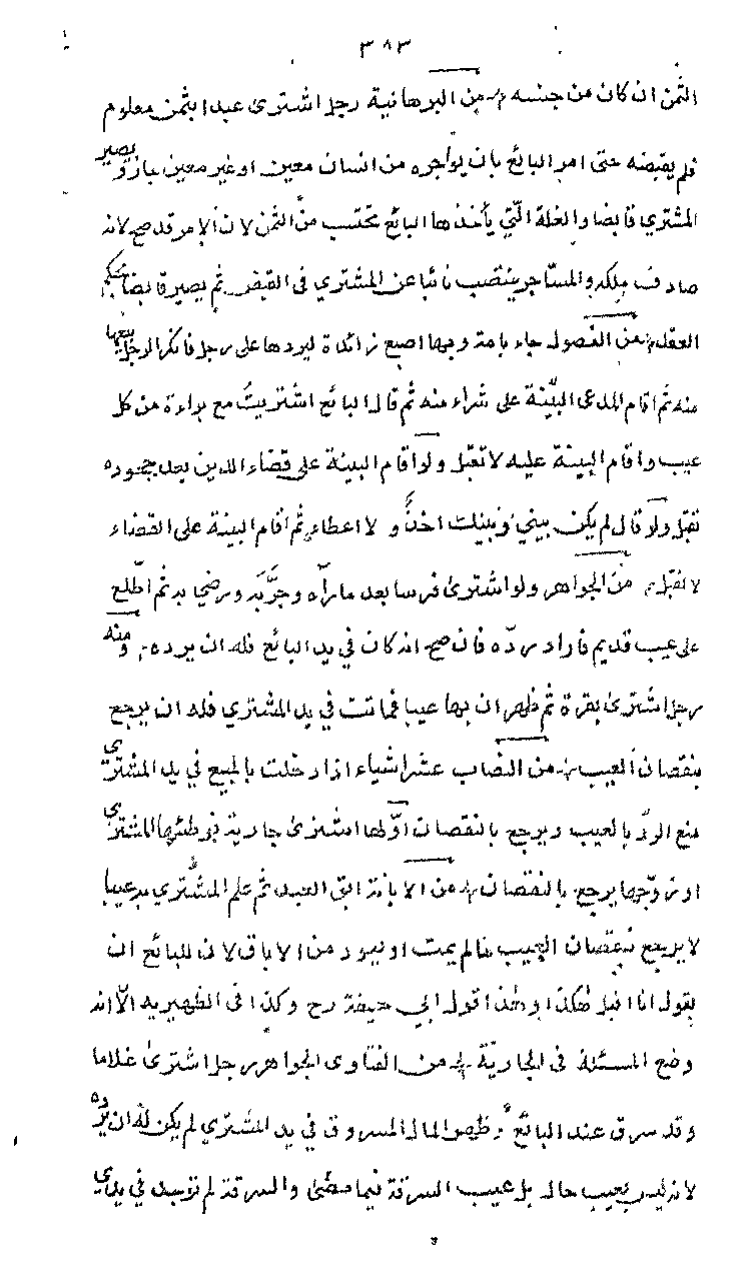 ٣٨٣
الثمن ان كان من جنسه من البرهانية رجل اشترى عبدا بثمن معلوم
فلم يقبضه حتى امر البائع بان يواجره من انسان معين او غير معين جاز ويصير
المشتري قابضا والغلة الّتي يأخذها البائع تحتسب منَ الثمن لان الامر قد صح لانه
صادف ملكه والمستاجر ينتصب نائبا عن المشتري فى القبض ثم يصير قابضا بحكم
العقد من الفصول جاء بامة وبها اصبع زائدة ليردها على رجل فانكر الرجل بيعها
منه ثم اقام المدعى البيّنة على شراء منه ثم قال البائع اشتريتُ مع براءة من كل
عيب واقام البينة عليه لا تقبل ولو اقام البينة على قضاء الدين بعد جحوده
تقبل ولو قال لم يكن بيني وبينك اخذٌ ولا اعطاء ثم اقام البينة على القضاء
لا تقبل من الجواهر ولو اشترى فرسا بعد ما رآه وجرَّبَه ورضي به ثم اطّلع
على عيب قديم فاراد ردّه فان صح انه كان في يد البائع فله ان يرده ومنه
رجل اشترى بقرة ثم ظهر ان بها عيبا فماتت في يد المشتري فله ان يرجع
بنقصان العيب من النصاب عشر اشياء اذا دخلت بالمبيع في يد المشتري
منع الردّ بالعيب ويرجع بالنقصان اوّلها اشترى جارية فوطئها المشتري
او زوّجها يرجع بالنقصان من الابانة ابق العبد ثم علم المشتري به عيبا
لا يرجع بنقصان العيب مالم يمت او يعود من الاباق لان للبائع ان
يقول انا اقبل هكذا وهذا قول ابي حنيفة رح وكذا فى الظهيريه الّا انه
وضع المسئلة فى الجاريّة من الفتاوى الجواهر رجل اشترى غلاما
وقد سرق عند البائع وظهر المال المسروق في يد المشتري لم يكن له ان يرده
لانه ليس بعيب حال بل عيب السرقة فيما مضى والسرقة لم توجد في يدي